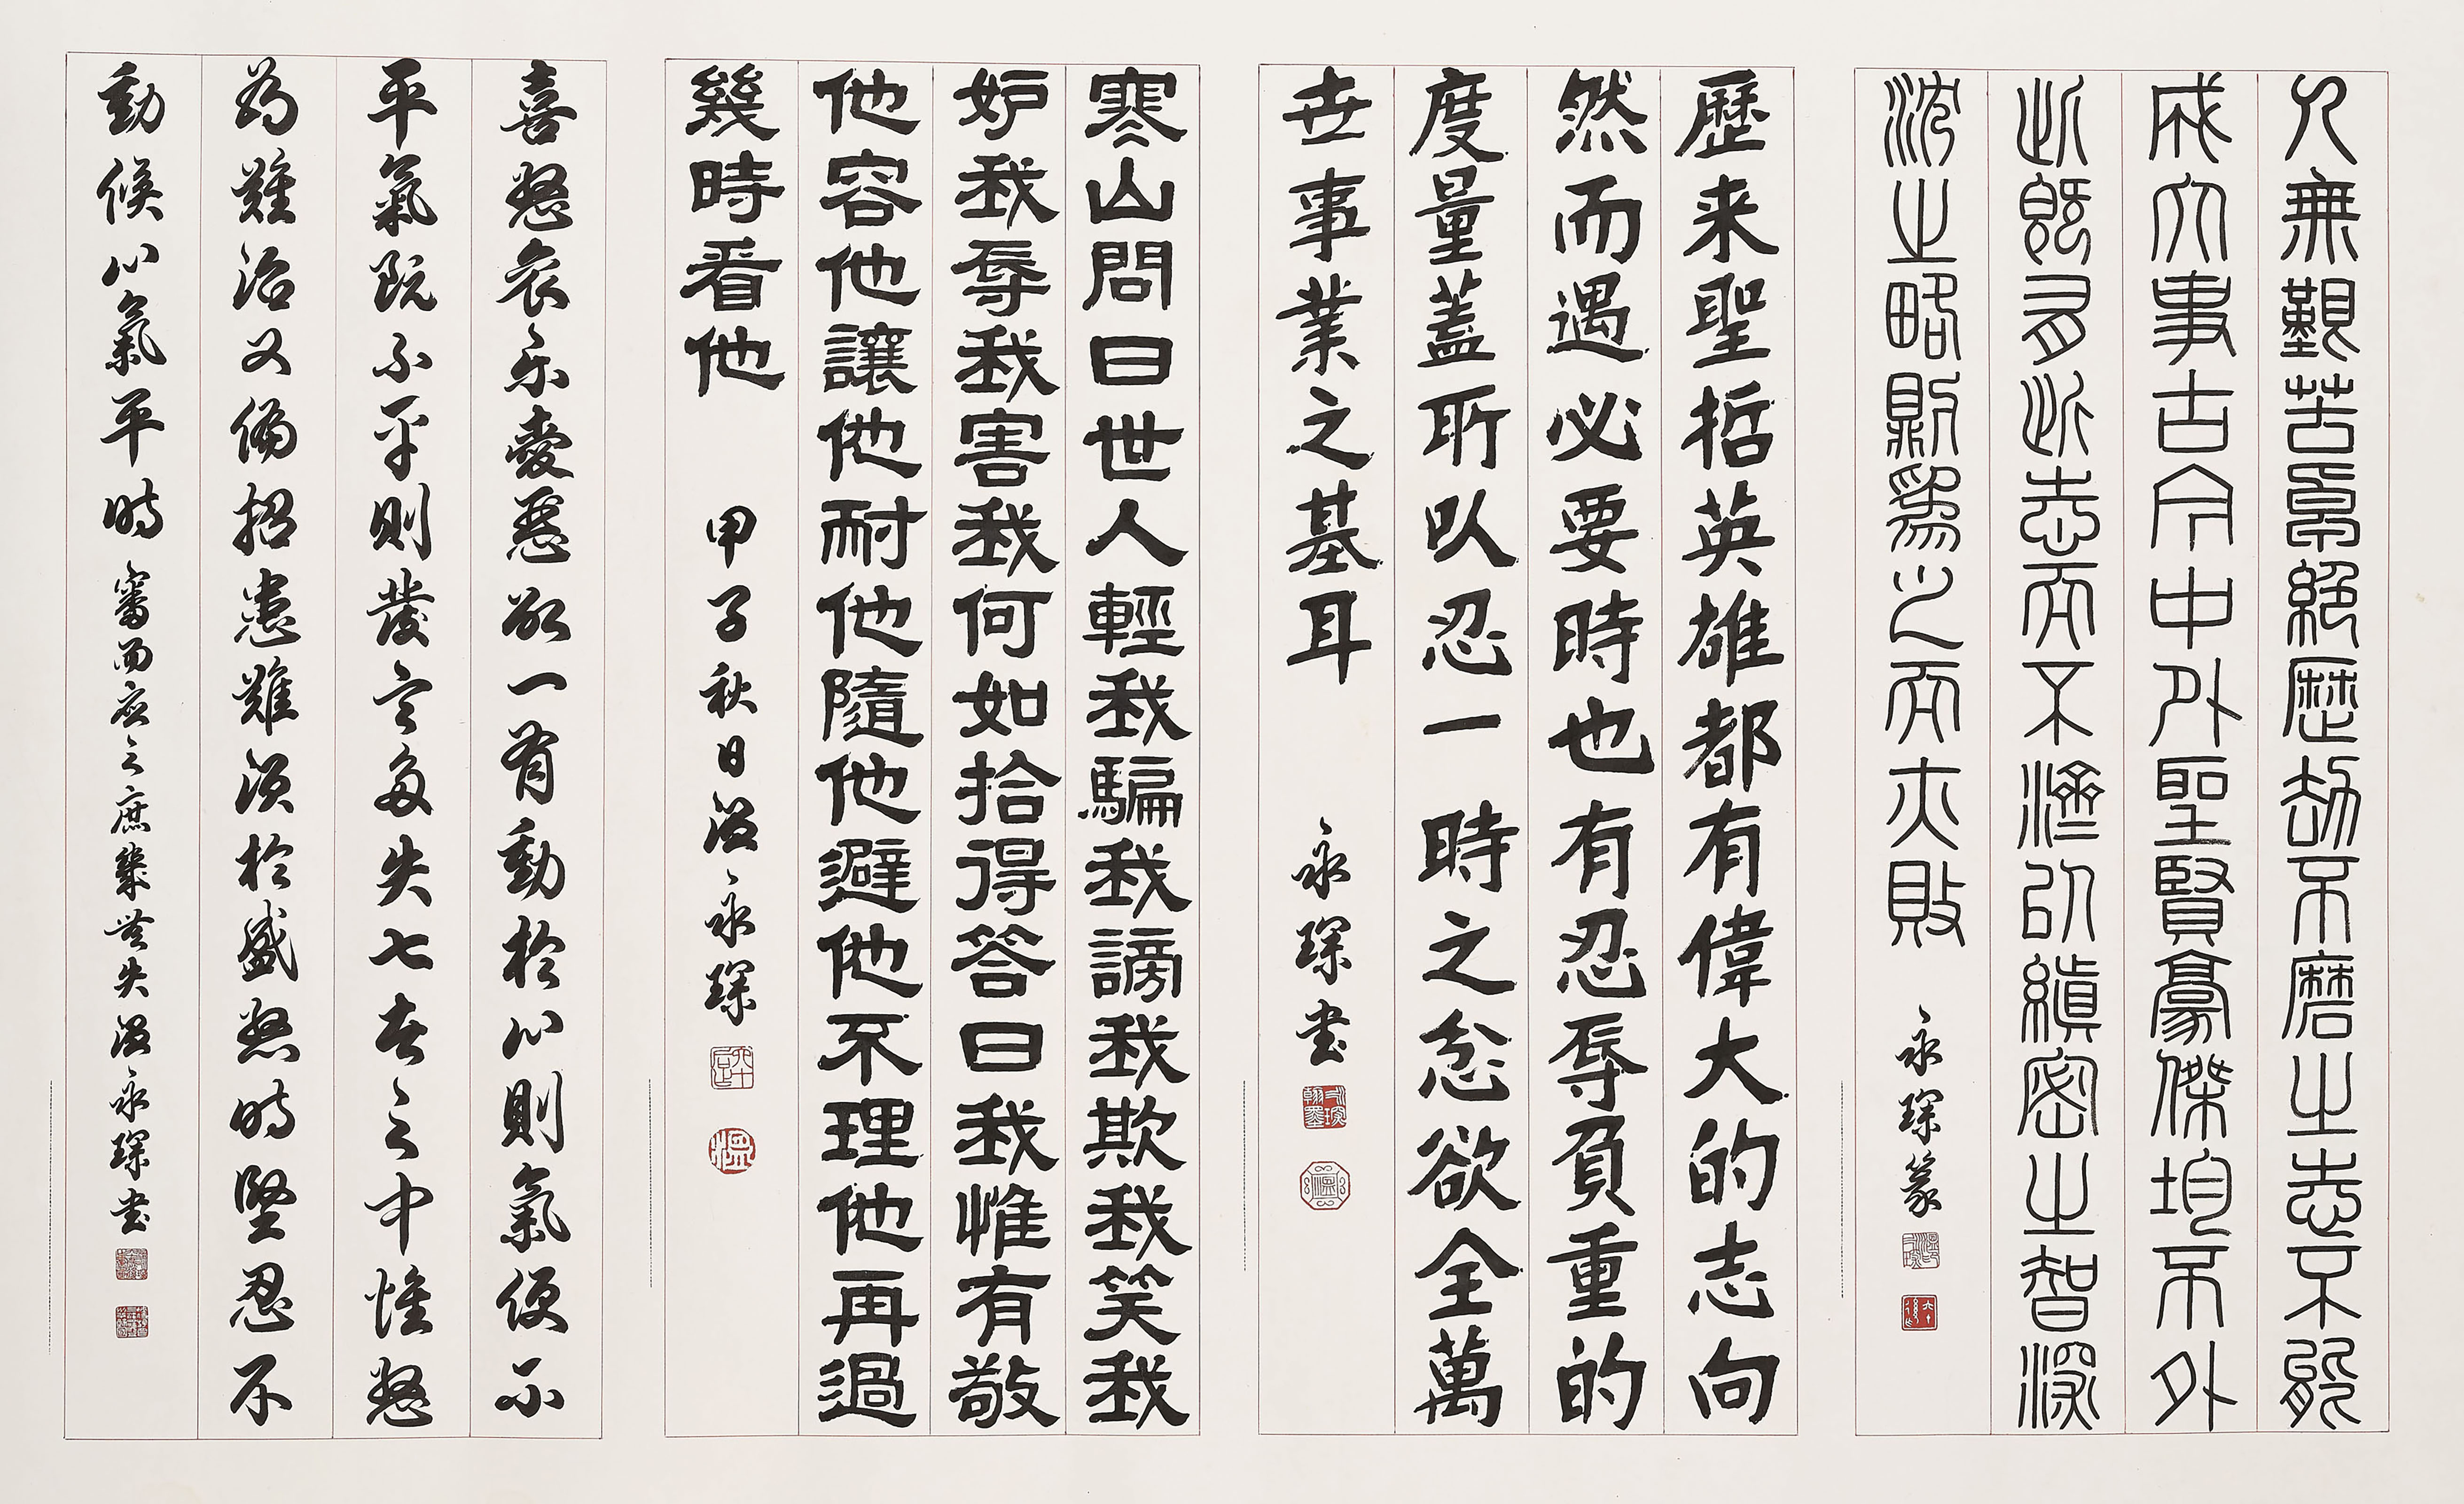 人無艱苦卓絕歷劫不磨之志不能
成大事古今中外聖賢豪傑均不外
此既有此志而不濟以縝密之智深
沈之略則為之而亦敗 永琛篆
歷来聖哲英雄都有偉大的志向
然而遇必要時也有忍辱負重的
度量蓋所以忍一時之忿欲全萬
世事業之基耳 永琛書
寒山問曰世人輕我騙我謗我欺我笑我
妒我辱我害我何如拾得答曰我惟有敬
他容他讓他耐他隨他避他不理他再過
幾時看他 甲子秋日溫永琛
喜怒哀樂愛惡欲一有動於心則氣便不
平氣既不平則發言多失七者之中惟怒
為難治又偏招患難須於盛怒時堅忍不
動候心氣平時審而應之庶幾無失溫永琛書